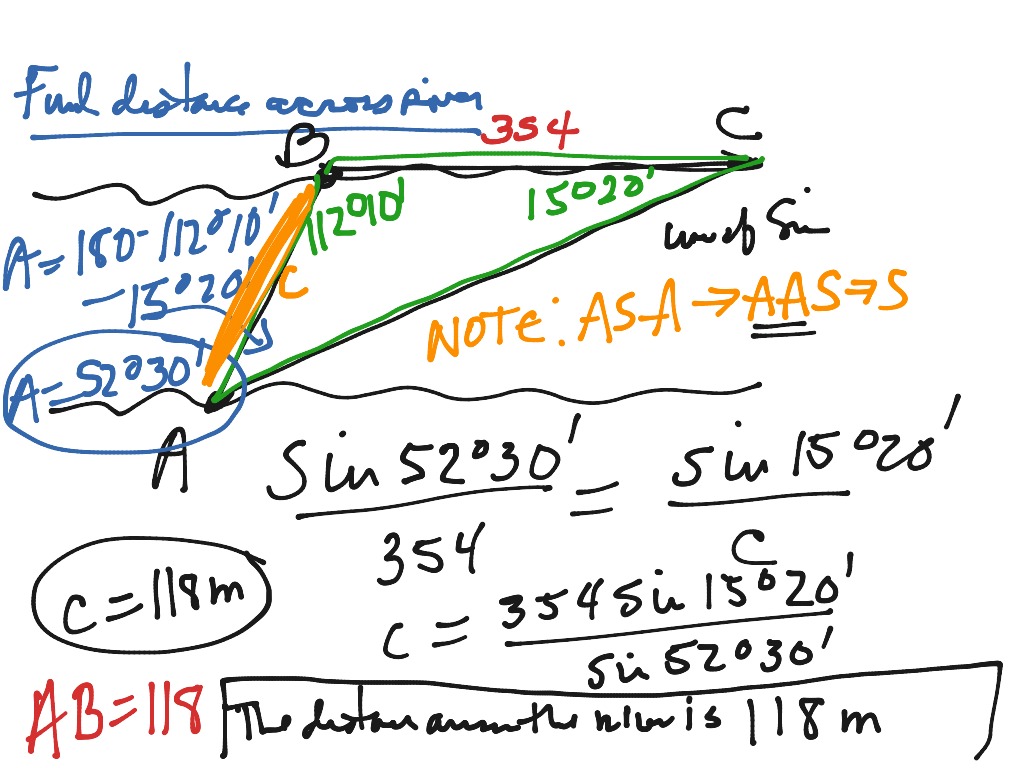 Find distance across river
B 354 C
112°10' 15°20'
A = 180 - 112°10'
- 15°20'
c
Law of Sin
NOTE: ASA → AAS ⇒ S
A = 52°30'
A
Sin 52°30' / 354 = Sin 15°20' / C
c = 354 Sin 15°20' / Sin 52°30'
c = 118 m
AB = 118
The distance across the river is 118 m